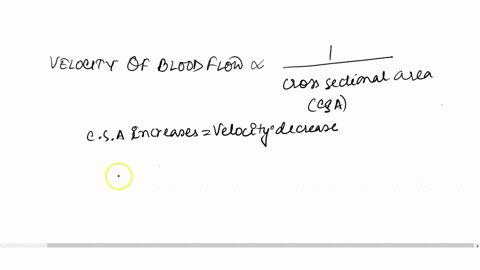 VELOCITY OF BLOOD FLOW ∝ 1
cross sectional area
(CSA)
C.S.A increases = Velocity decrease